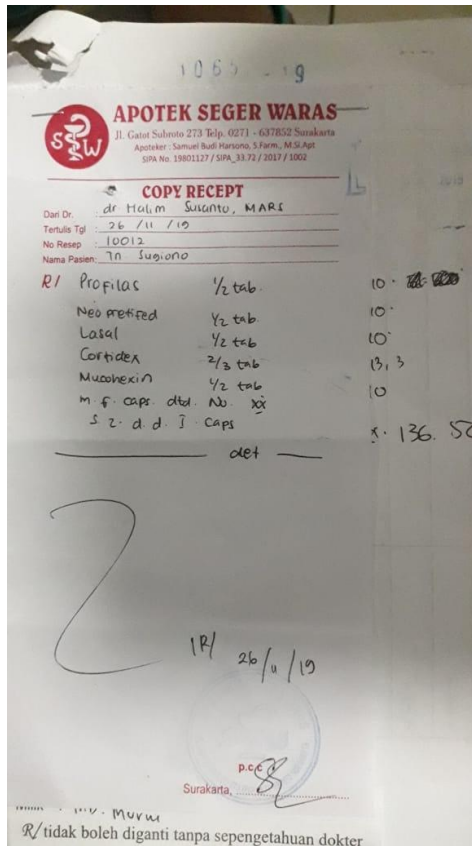 1065 - 19
SW
APOTEK SEGER WARAS
Jl. Gatot Subroto 273 Telp. 0271 - 637852 Surakarta
Apoteker : Samuel Budi Harsono, S.Farm., M.Si.Apt
SIPA No. 19801127 / SIPA_33.72 / 2017 / 1002
COPY RECEPT
Dari Dr. : dr Halim Susanto, MARS
Tertulis Tgl : 26 / 11 / 19
No Resep : 10012
Nama Pasien: Tn Sugiono
R/ Profilas 1/2 tab 10
Neo Pretifed 1/2 tab. 10
Lasal 1/2 tab 10
Cortidex 2/3 tab 13,3
Mucohexin 1/2 tab 10
m. f. caps. dtd. No. xx
S. 2. d. d. I. Caps x. 136. 5
det
IR/ 26/11/19
p.c.c
Surakarta,
R/ tidak boleh diganti tanpa sepengetahuan dokter